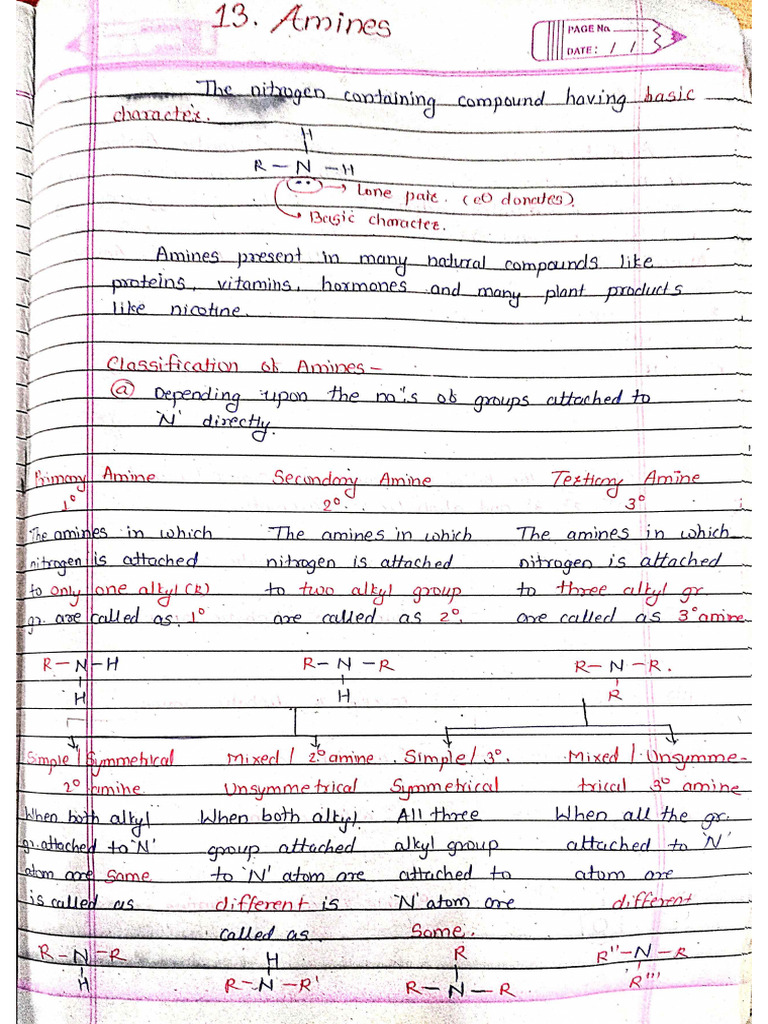 13. Amines
PAGE No.
DATE: / /
The nitrogen containing compound having basic
character.
H
R – N – H
→ Lone pair. (e⊖ donates).
→ Basic character.
Amines present in many natural compounds like
proteins, vitamins, hormones and many plant products
like nicotine.
Classification of Amines –
(a) Depending upon the no's of groups attached to
'N' directly.
Primary Amine
1°
The amines in which
nitrogen is attached
to only one alkyl (R)
gr. are called as 1°
R – N – H
H
Secondary Amine
2°.
The amines in which
nitrogen is attached
to two alkyl group
are called as 2°.
R – N – R
H
Tertiary Amine
3°
The amines in which
nitrogen is attached
to three alkyl gr.
are called as 3° amine
R – N – R.
R
Simple / Symmetrical
2° amine
When both alkyl
gr. attached to 'N'
atom are Same
is called as
R – N – R
H
Mixed / 2° amine
Unsymmetrical
When both alkyl
group attached
to 'N' atom are
different is
called as.
H
R – N – R'
Simple / 3°.
Symmetrical
All three
alkyl group
attached to
'N' atom are
Same.
R
R – N – R
Mixed / Unsymme-
trical 3° amine
When all the gr.
attached to 'N'
atom are
different
R'' – N – R
R'''